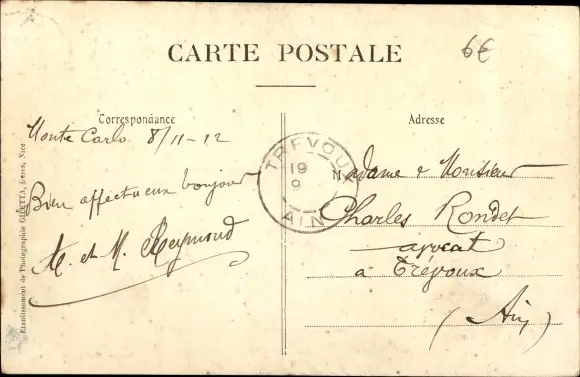 CARTE POSTALE
6€
Correspondance
Monte Carlo 8/11-12
Bien affectueux bonjour
M. et M. Reymond
Etablissement de Photographie GILETTA, frères, Nice
TREVOUX
19
9
AIN
Adresse
Madame & Monsieur
Charles Rondet
avocat
à Trévoux
(Ain)